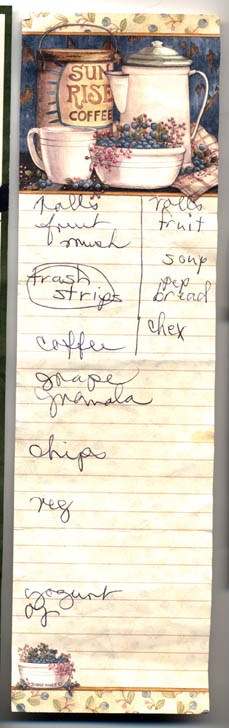 SUN
RISE
COFFEE
rolls
fruit
mush
trash
strips
coffee
grape
granola
chips
veg
yogurt
oj
rolls
fruit
soup
pep
bread
chex